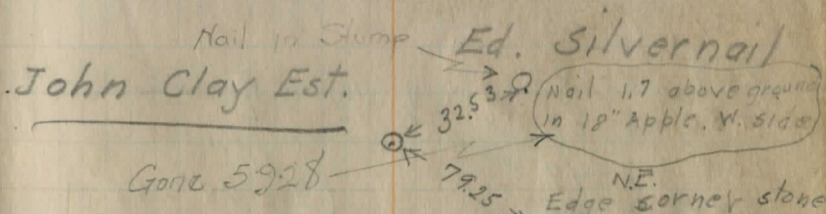 Nail in Stump
Ed. Silvernail
John Clay Est.
Nail 1.7 above ground
in 18" Apple. W. side
32.53
Gone 5928
79.25
N.E.
Edge corner stone